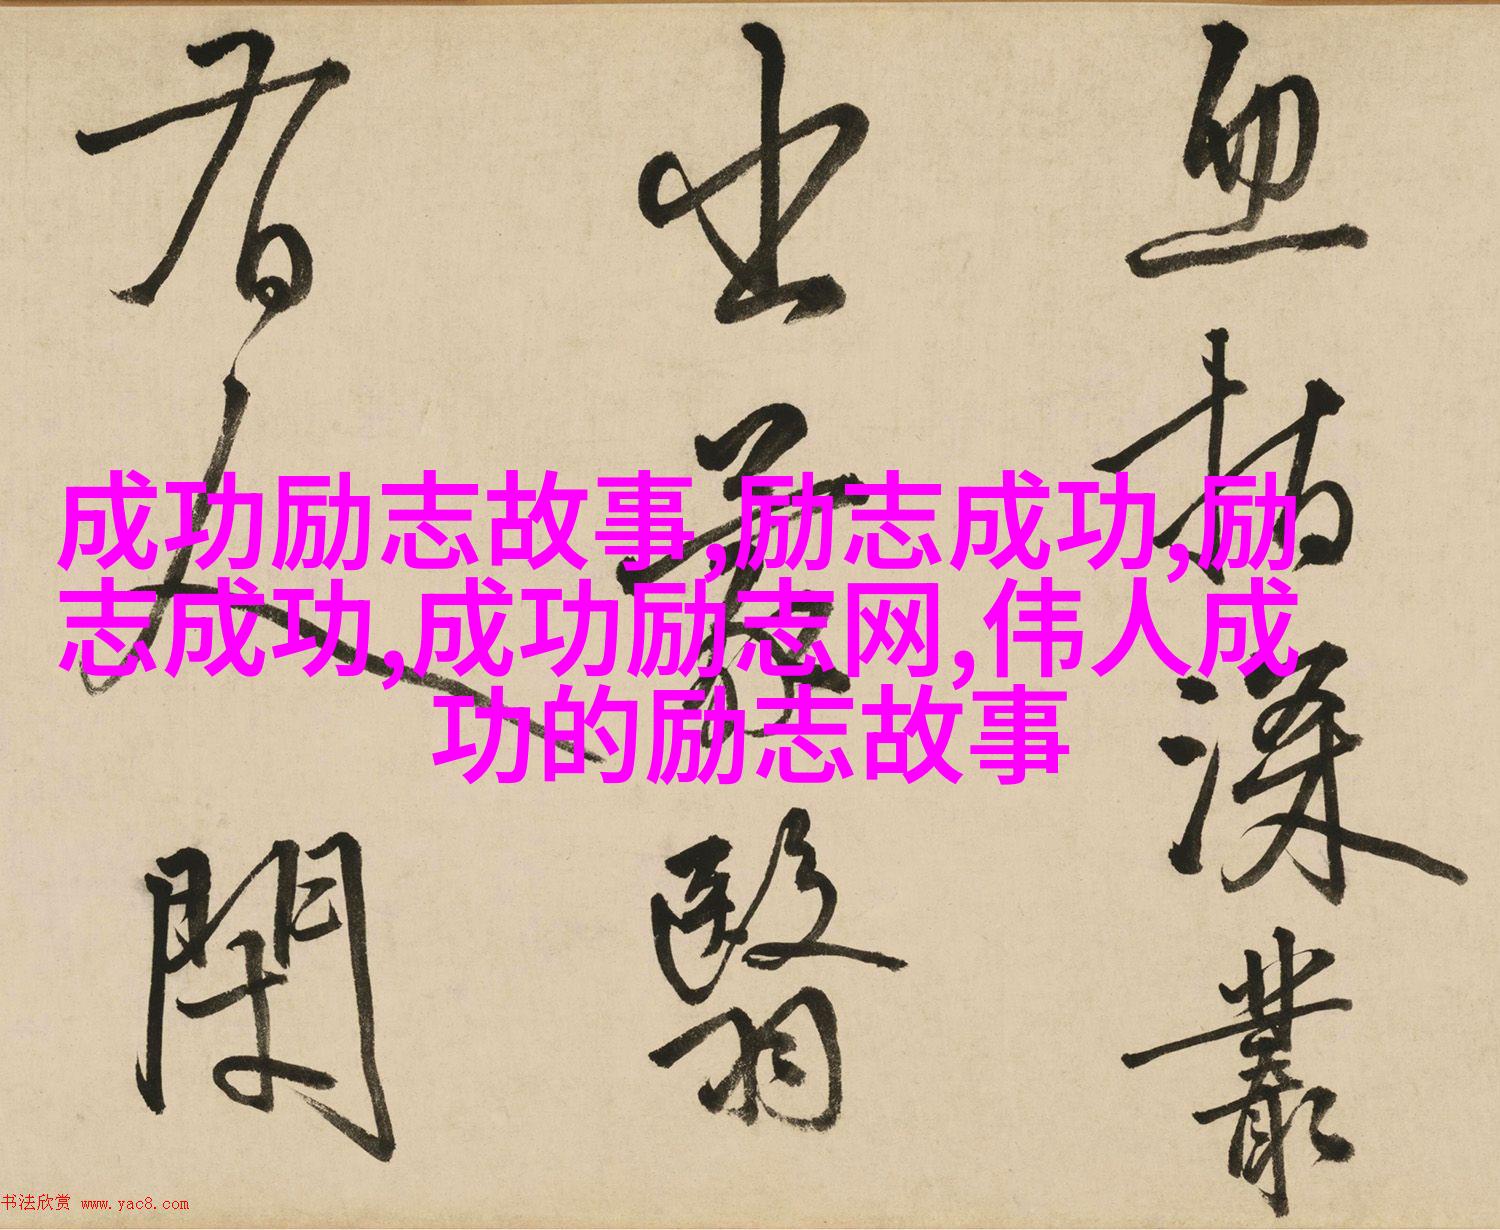 深叢
出
翳
有人
成功励志故事,励志成功,励
志成功,成功励志网,伟人成
功的励志故事
书法欣赏 www.yac8.com